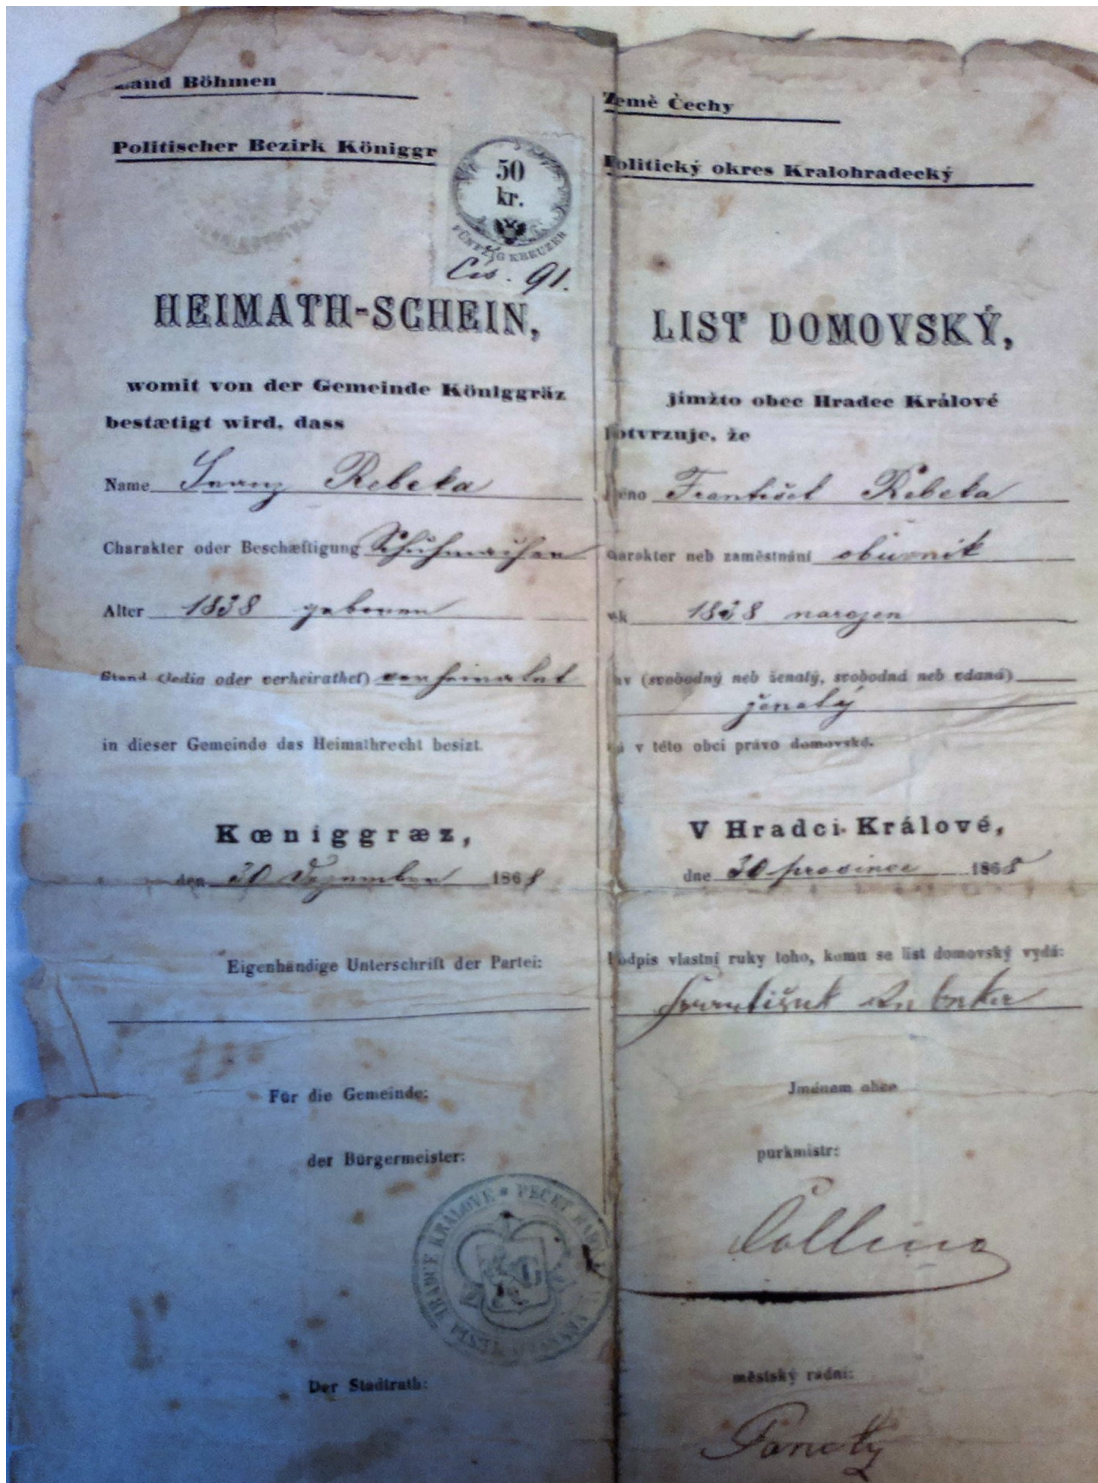 Land Böhmen
Politischer Bezirk Königgr
50
kr.
FÜNFZIG KREUZER
Čís. 91.
HEIMATH-SCHEIN,
womit von der Gemeinde Königgräz
bestætigt wird, dass
Name Franz Rebeka
Charakter oder Beschæftigung Schuhmacher
Alter 1838 geboren
Stand (ledig oder verheirathet) verheiratet
in dieser Gemeinde das Heimathrecht besizt.
Kœniggræz,
den 30 Dezember 1868
Eigenhändige Unterschrift der Partei:
Für die Gemeinde:
der Bürgermeister:
HRADCE KRÁLOVÉ * PEČEŤ
Der Stadtrath:
Země Čechy
Politický okres Kralohradecký
LIST DOMOVSKÝ,
jímžto obec Hradec Králové
potvrzuje, že
Jméno František Rebeka
charakter neb zaměstnání obuvník
1838 narozen
(svobodný neb ženatý, svobodná neb vdaná)
ženatý
má v této obci právo domovské.
V Hradci Králové,
dne 30 prosince 1868
Podpis vlastní ruky toho, komu se list domovský vydá:
František Rebeka
Jménem obce
purkmistr:
Collino
městský radní: